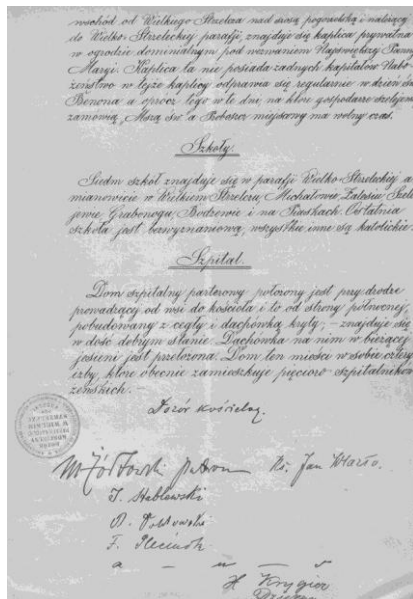 wschód od Wielkiego Strzelcza nad szosą pogorzelską i należący
do Wielko-Strzeleckiej parafji, znajduje się kaplica prywatna
w ogrodzie dominialnym pod wezwaniem Najświętszej Panny
Maryi. Kaplica ta nie posiada żadnych kapitałów. Nabo-
żeństwo w tejże kaplicy odprawia się regularnie w dzień św.
Benona a oprócz tego w te dni, na które gospodarze
zamówią Mszą św. a Proboszcz miejscowy ma wolny czas.
Szkoły.
Siedm szkół znajduje się w parafji Wielko-Strzeleckiej a
mianowicie w Wielkiem Strzelczu, Michałowie, Zalesiu, Szele-
jewie, Grabonogu, Bodzewie i na Piaskach. Ostatnia
szkoła jest bezwyznaniową, wszystkie inne są katolickie.
Szpital.
Dom szpitalny parterowy położony jest przy drodze
prowadzącej od wsi do kościoła i to od strony północnej,
pobudowany z cegły i dachówką kryty, – znajduje się
w dość dobrym stanie. Dachówka na nim w bieżącej
jesieni jest przełożona. Dom ten mieści w sobie cztery
izby, które obecnie zamieszkuje pięcioro szpitalników
żeńskich.
Dozór kościelny.
Patron Ks. Jan
F.
H. Krygier